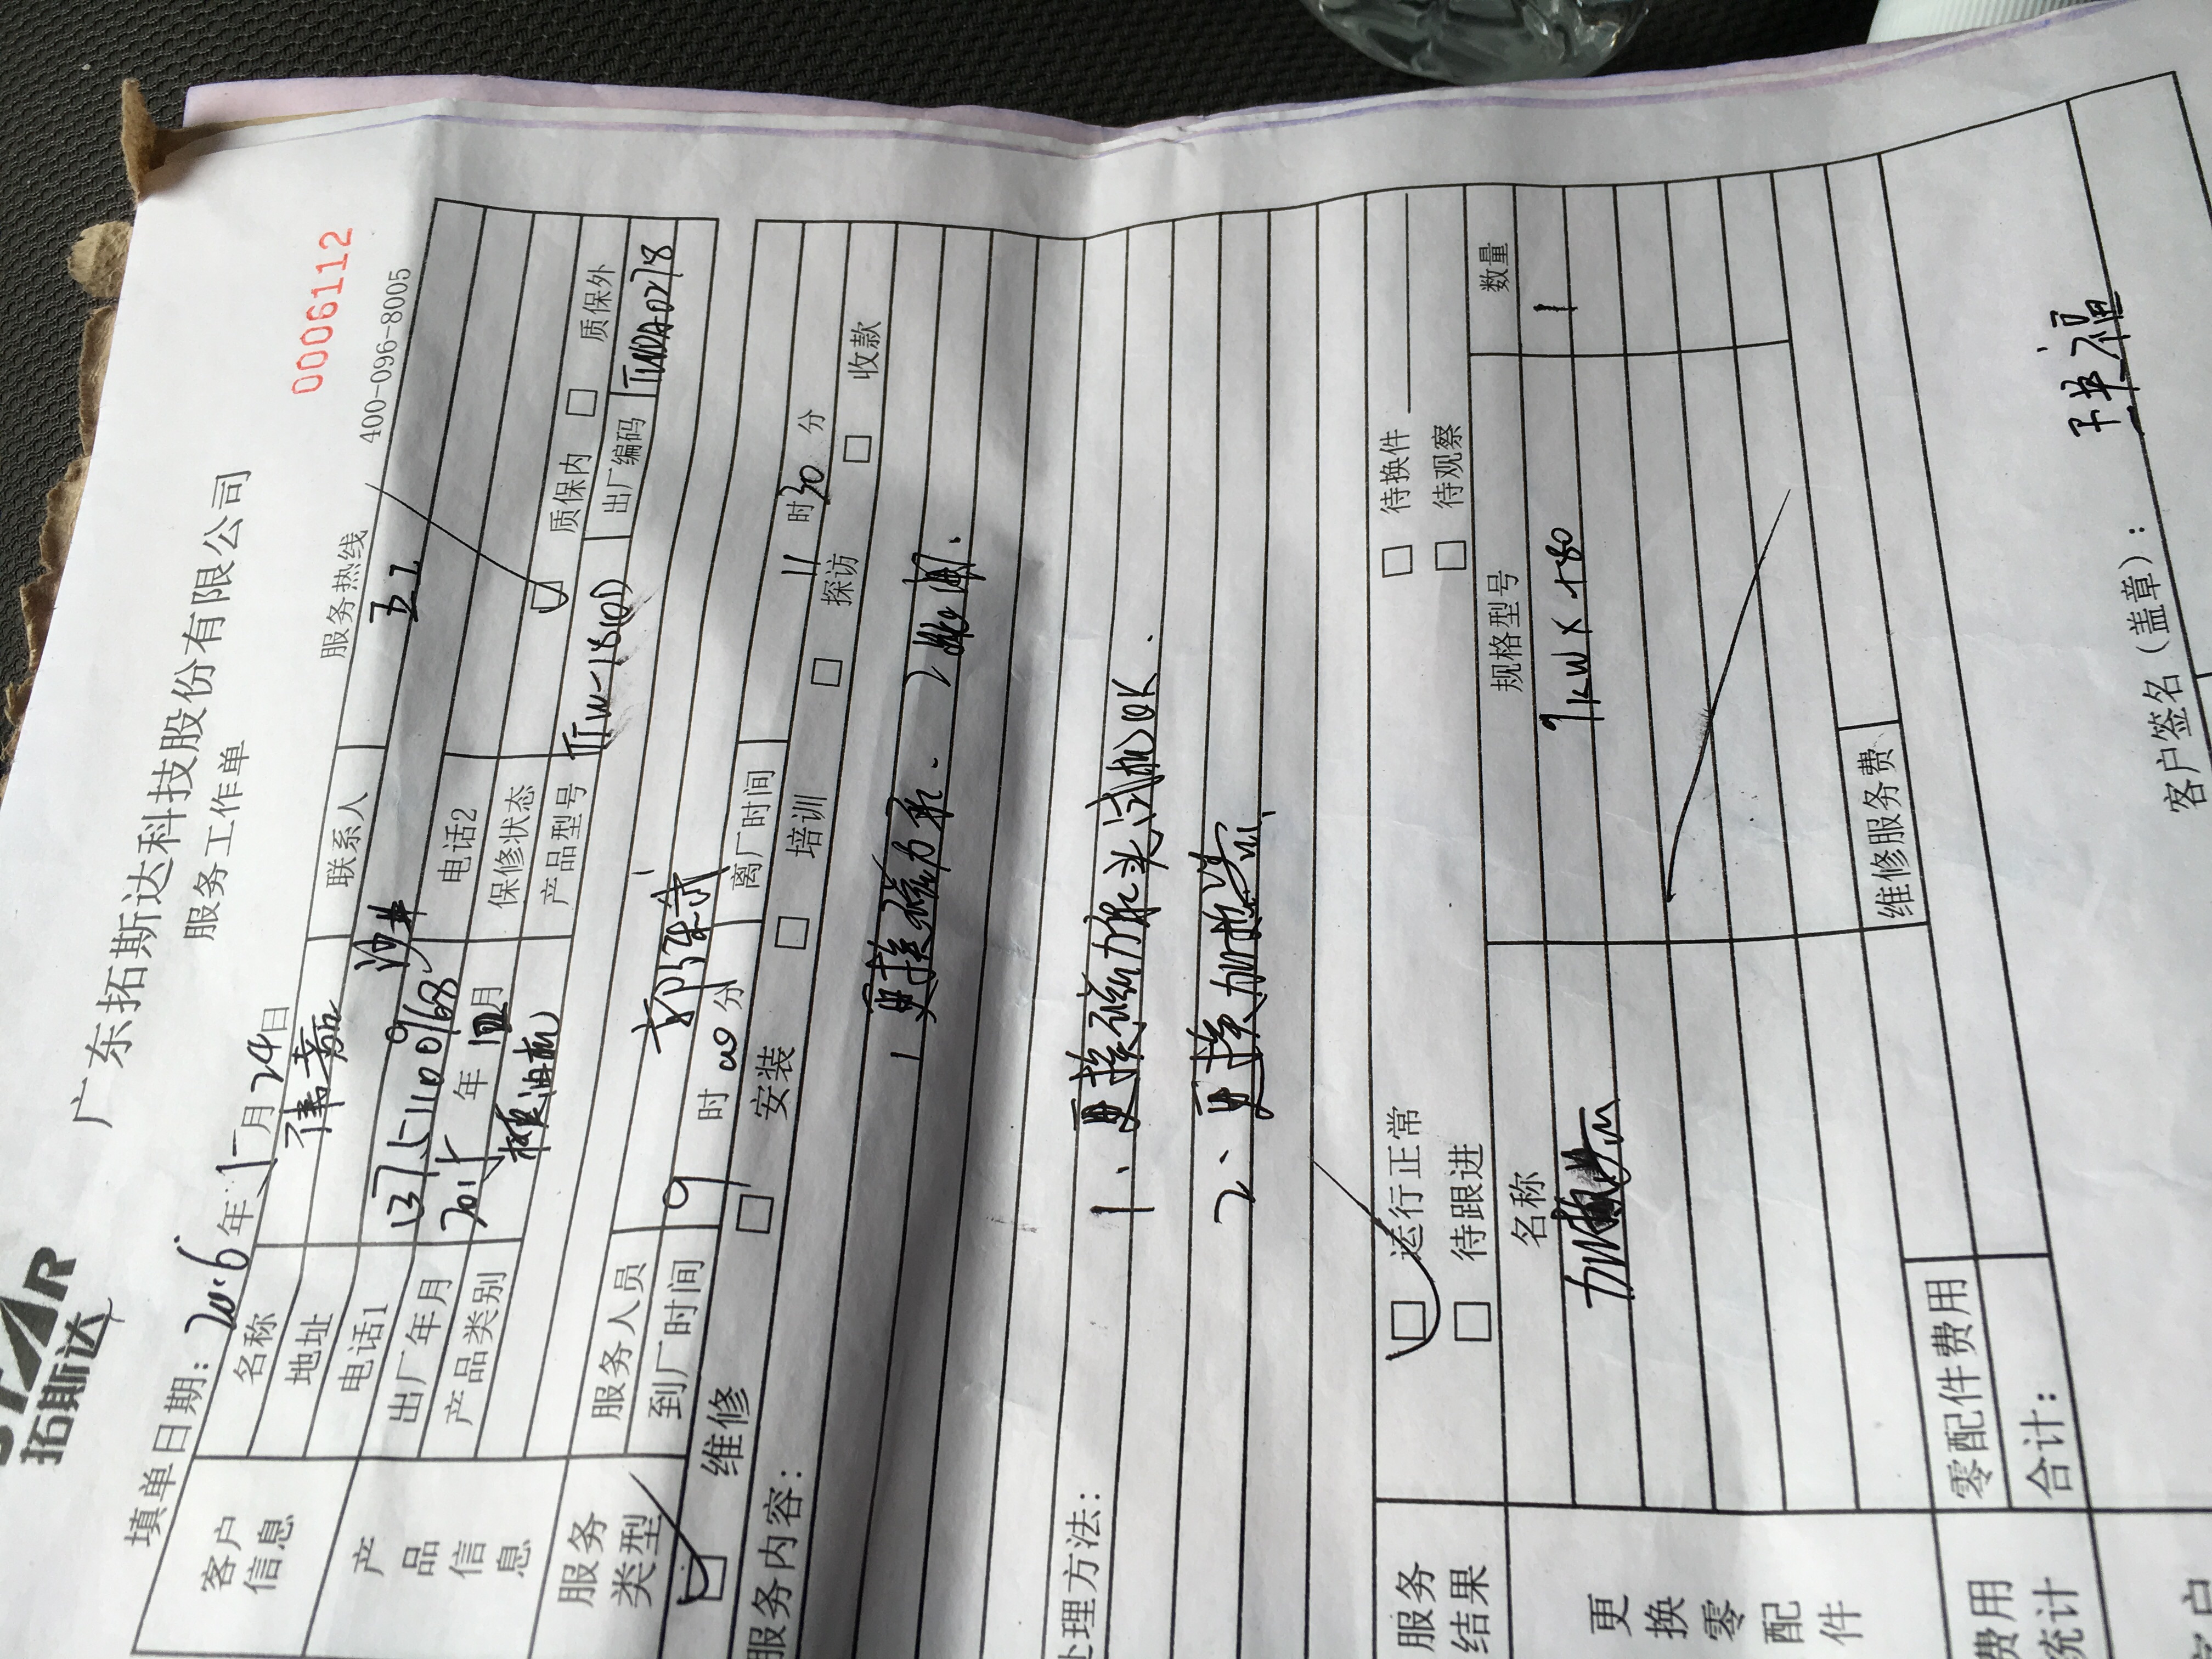 STAR
拓斯达
广东拓斯达科技股份有限公司
服务工作单
0006112
填单日期: 2016年 月24日
服务热线 400-096-8005
客户信息
名称 伟嘉 联系人 王工
地址 沙井
电话1 13751100168 电话2
产品信息
出厂年月 2015年 月 保修状态 质保内 质保外
产品类别 模温机 产品型号 TTW-1810D 出厂编码
服务人员
到厂时间 9时00分 离厂时间 11时30分
服务类型
维修 安装 培训 探访 收款
服务内容:
1 更换磁力泵. 2
处理方法:
1、更换磁力泵头试机OK.
2、更换加热器.
服务结果
运行正常 待换件
待跟进 待观察
更换零配件
名称 规格型号 数量
加热 9KW×180 1
费用统计
零配件费用 维修服务费
合计:
客户签名(盖章):
客户